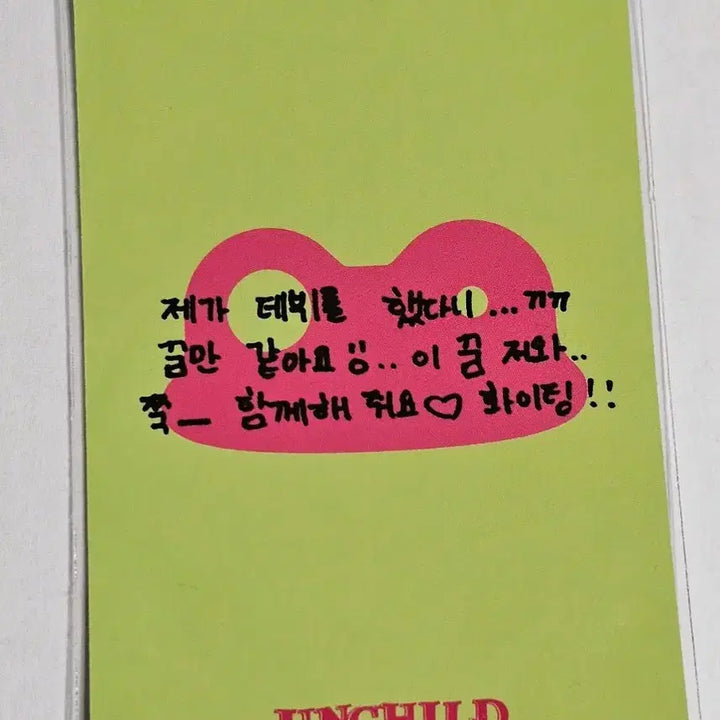 제가 데뷔를 했다니...ㅠㅠ
꿈만 같아요!!.. 이 꿈 저와..
쭉_ 함께해 줘요♡ 화이팅!!
UNCHILD